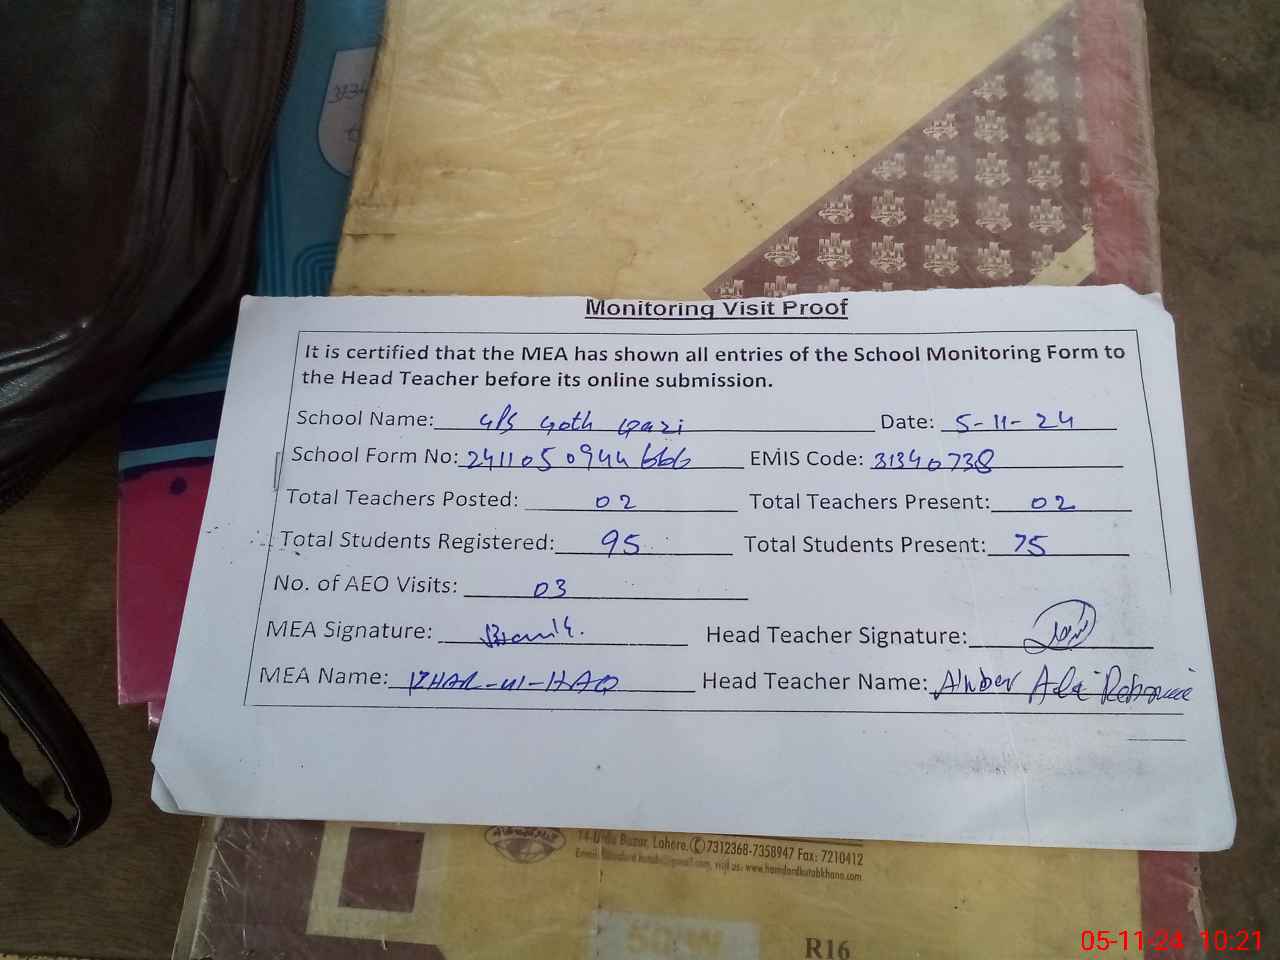 Monitoring Visit Proof
It is certified that the MEA has shown all entries of the School Monitoring Form to
the Head Teacher before its online submission.
School Name: G/S Goth Qazi Date: 5-11-24
School Form No: 2411050944666 EMIS Code: 31340738
Total Teachers Posted: 02 Total Teachers Present: 02
Total Students Registered: 95 Total Students Present: 75
No. of AEO Visits: 03
MEA Signature: Head Teacher Signature:
MEA Name: -UL-HAQ Head Teacher Name:
14-Urdu Bazar, Lahore. (C) 7312368-7358947 Fax: 7210412
visit us: www.hamdardkutabkhana.com
50/W
R16
05-11-24 10:21